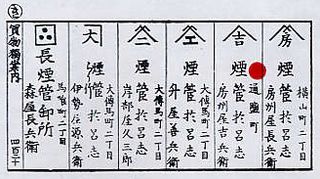 房
横山町二丁目
煙管於呂志
房州屋長兵衛
吉
通塩町
煙管於呂志
房州屋吉兵衛
エ
大傳馬町二丁目
煙管於呂志
升屋善兵衛
二
大傳馬町二丁目
煙管於呂志
岸部屋久三郎
大
大傳馬町二丁目
煙管於呂志
伊勢住源兵衛
馬喰町二丁目
長煙管御所
森屋長兵衛
買物獨案内